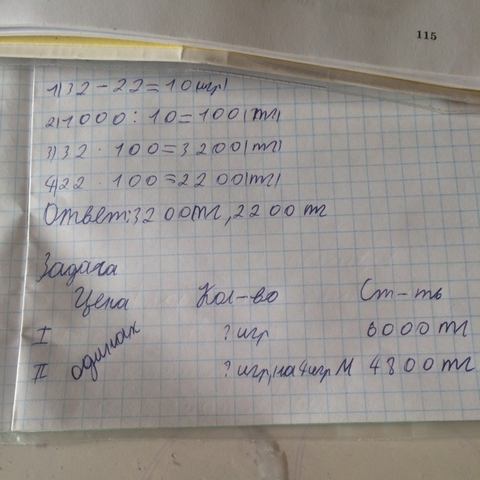 115
1) 32 - 22 = 10 (игр)
2) 1000 : 10 = 100 (тг)
3) 32 · 100 = 3200 (тг)
4) 22 · 100 = 2200 (тг)
Ответ: 3200тг, 2200 тг
Задача
Цена Кол-во Ст-ть
I одинак ? игр 6000 тг
II ? игр, на 4 игр М 4800 тг